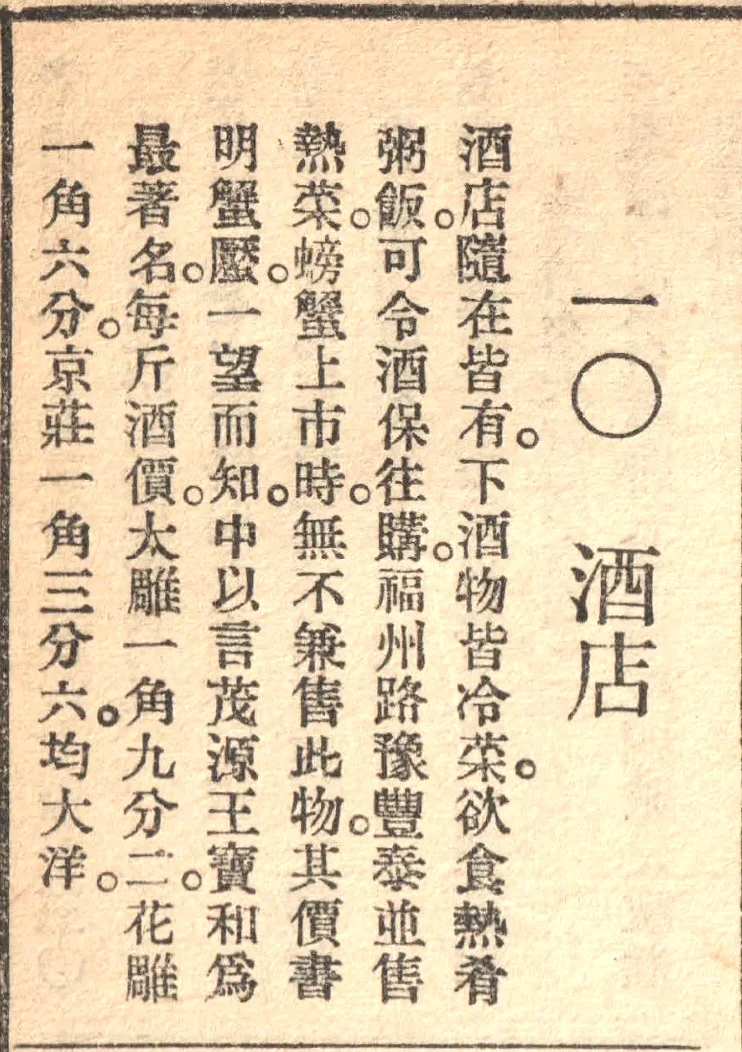 一〇 酒店
酒店隨在皆有。下酒物皆冷菜。欲食熱肴
粥飯。可令酒保往購。福州路豫豐泰並售
熱菜。螃蟹上市時。無不兼售此物。其價書
明蟹厴。一望而知。中以言茂源王寶和爲
最著名。每斤酒價。太雕一角九分二。花雕
一角六分。京莊一角三分六。均大洋。